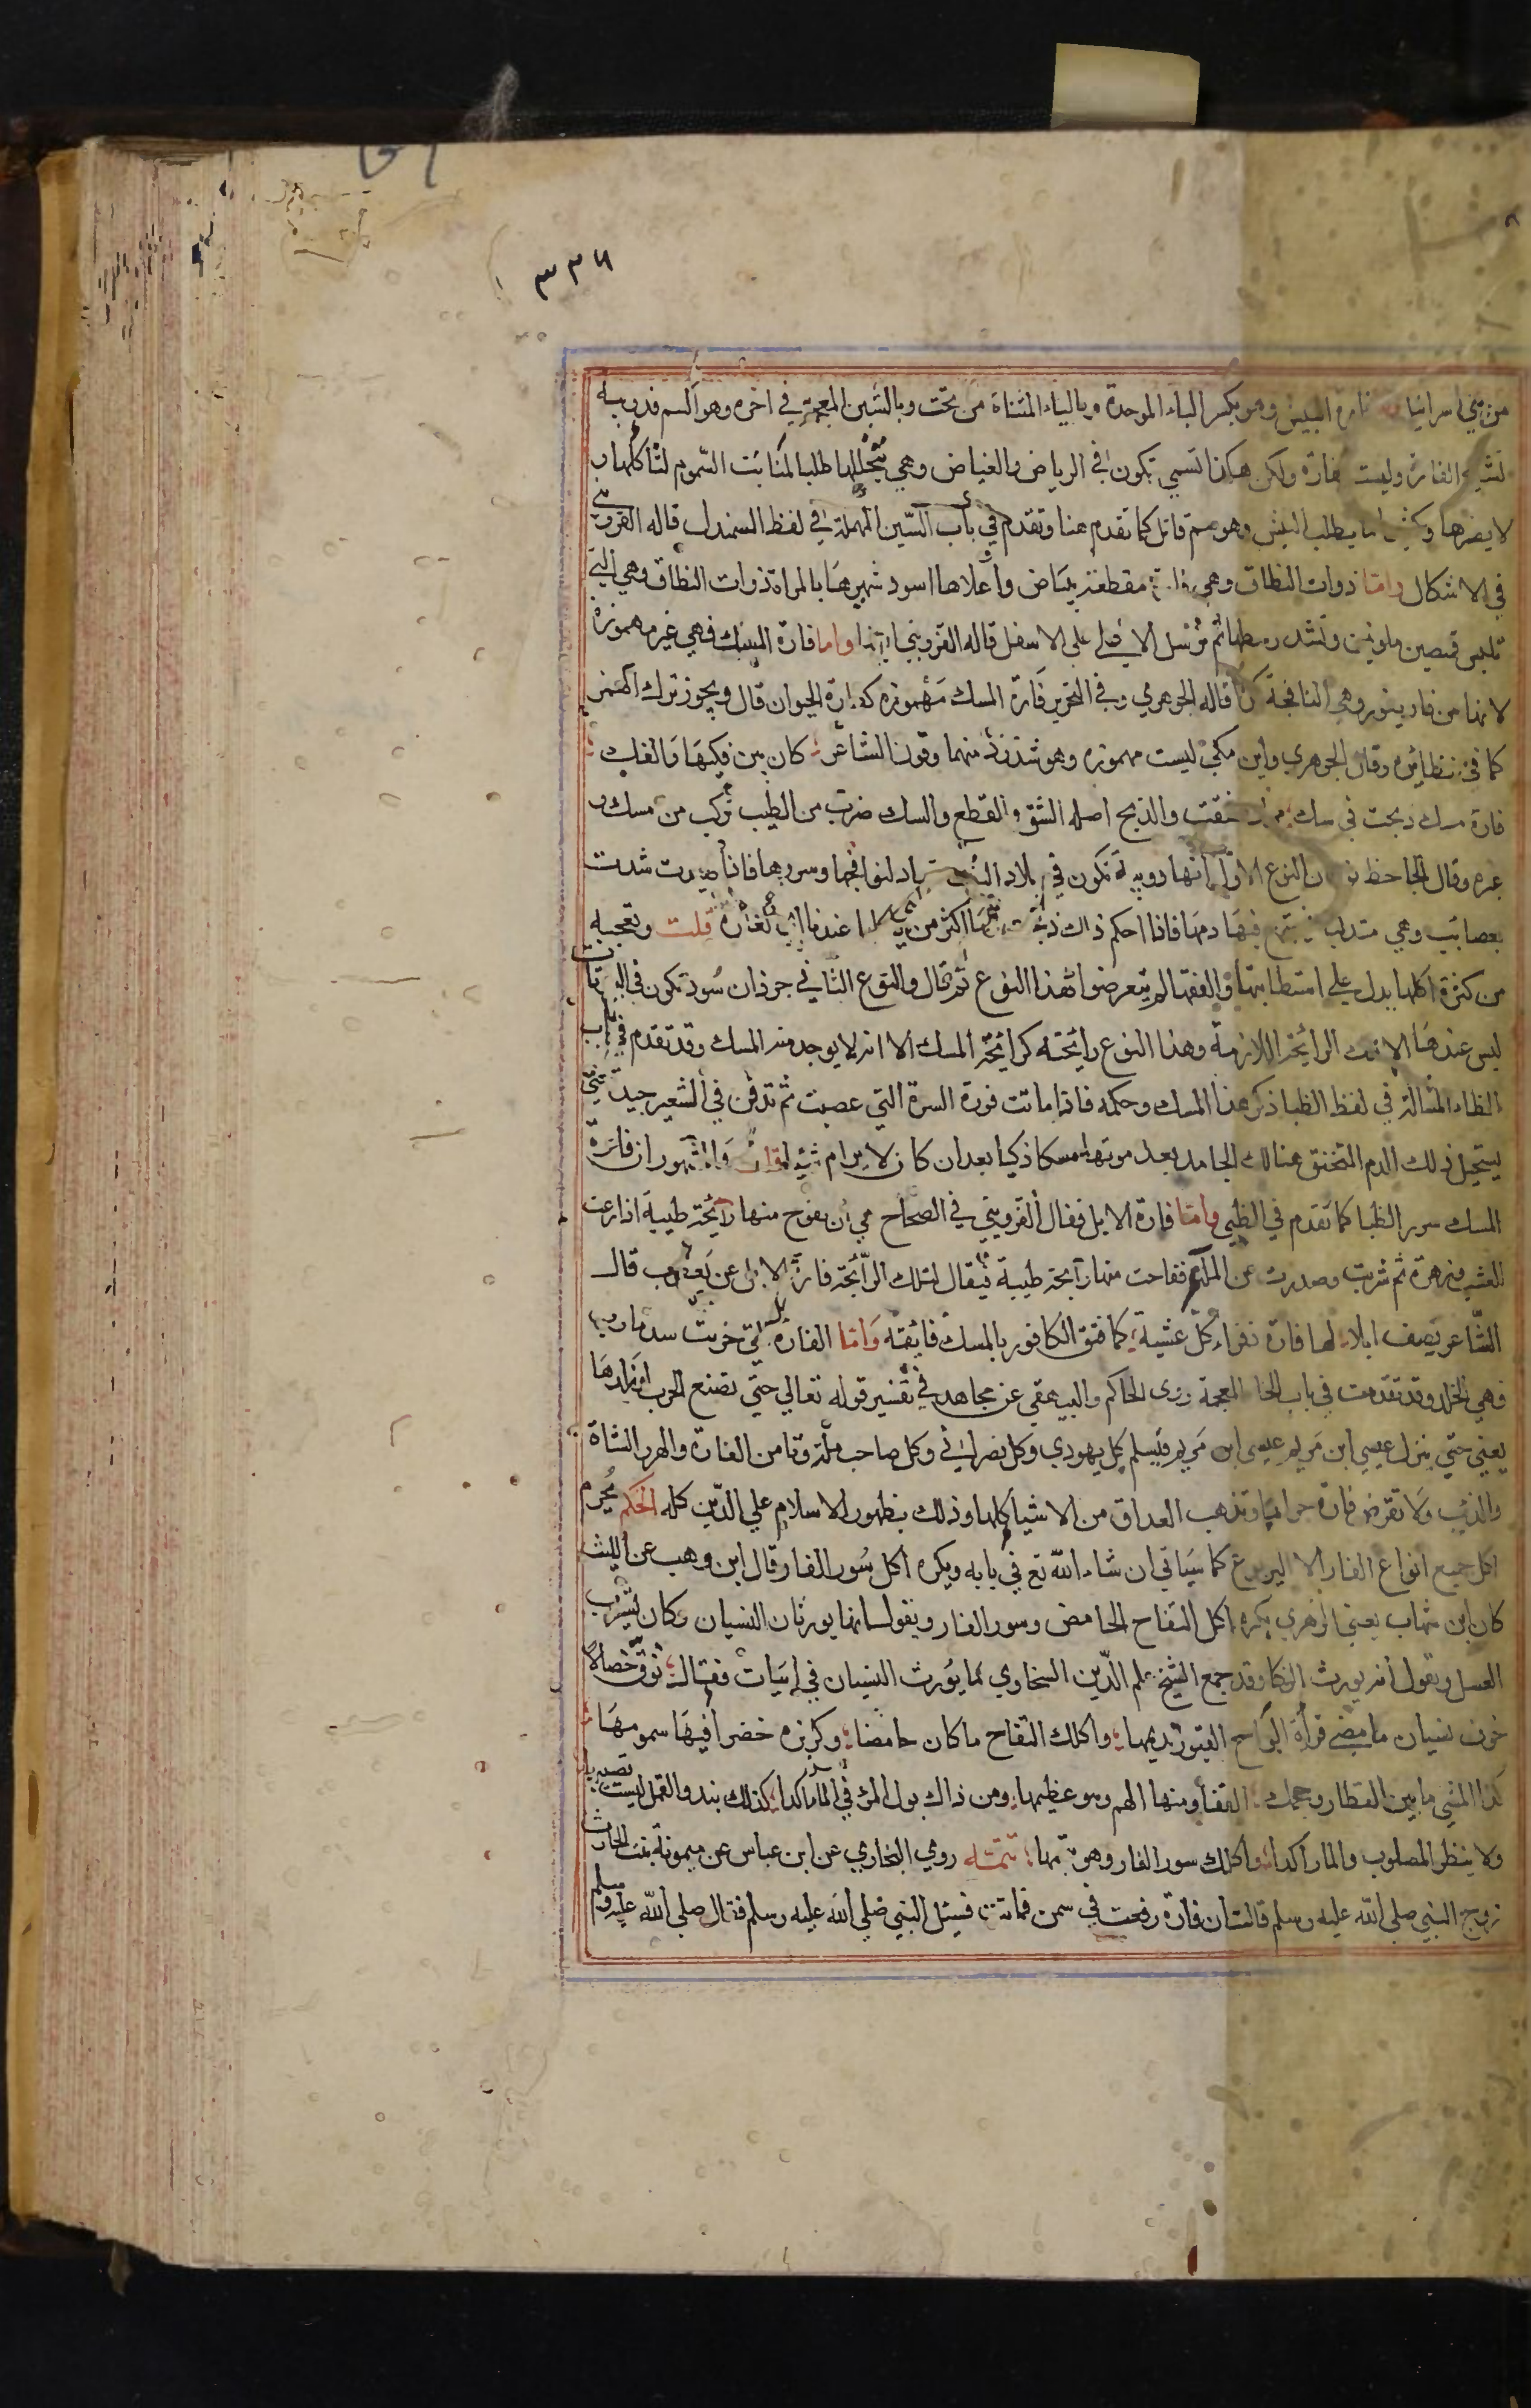 ٣٣٦
من بني اسرائيل فارة البيش وهو بكسر الباء الموحدة وبالياء المثناة من تحت وبالشين المعجمة في اخره وهو السم فدويبه
تشبه الفارة وليست بفارة ولكن هكذا تسمي تكون في الرياض والغياض وهي تتخللها طلبا لمنابت السموم لتاكلها و
لا يضرها وكثيرا ما يطلب البيش وهو سم قاتل كما تقدم هنا وتقدم في باب السين المهملة في لفظ السمندل قاله القزويني
في الاشكال واما ذوات النطاق وهي فارة منقطة ببياض واعلاها اسود شبهوها بالمراة ذوات النطاق وهي التي
تلبس قميصين ملونين وتشد وسطها ثم ترسل الاعلي علي الاسفل قاله القزويني ايضا واما فارة المسك فهي غير مهموزة
لانها من فار يفور وهي النافجة كذا قاله الجوهري وفي التحرير فارة المسك مهموزه كفارة الحيوان قال ويجوز ترك الهمز
كما في نظائره وقال الجوهري وابن مكي ليست مهموزه وهو شذوذ منهما وقول الشاعر كان بين فكيها والفك
فارة مسك ذبحت في سك مراد شقت والذبح اصله الشق والقطع والسك ضرب من الطيب تركب من مسك و
غيره وقال الجاحظ نوعان النوع الاول انها دويبة تكون في بلاد التبت تصاد لنوافجها وسررها فاذا صيدت شدت
بعصائب وهي متدلية فيجتمع فيها دمها فاذا احكم ذلك ذبحت وما اكثر من ياكلها عندنا اي الفارة قلت وتعجبه
من كثرة اكلها يدل علي استطابتها والفقها لم يتعرضوا لهذا النوع ثم قال والنوع الثاني جرذان سود تكون في البيوت
ليس عندها الا تلك الرائحة اللازمة وهذا النوع رايحته كرائحة المسك الا انه لا يوجد منه المسك وقد تقدم في باب
الظاء المشالة في لفظ الظبا ذكر هذا المسك وحكمه فاذا ماتت قورة السرة التي عصبت ثم تدفن في الشعير حينا حتي
يستحيل ذلك الدم المختنق هنالك الجامد بعد موتها مسكا ذكيا بعد ان كان لا يرام والمشهور ان فارة
المسك سرر الظبا كما تقدم في الظبي واما فارة الابل فقال القزويني في الصحاح هي ان يفوح منها رائحة طيبة اذا رعت
العشب وزهره ثم شربت وصدرت عن الماء ففاحت منها رائحة طيبة فيقال لتلك الرائحة فارة الابل عن يعقوب قال
الشاعر يصف ابلا لها فارة ذفراء كل عشية كما فتق الكافور بالمسك فاتقه واما الفارة التي خربت سد مارب
فهي الخلد وقد تقدمت في باب الخا المعجمة روي الحاكم والبيهقي عن مجاهد في تفسير قوله تعالي حتي تضع الحرب اوزارها
يعني حتي ينزل عيسي ابن مريم عيسي ابن مريم فيسلم كل يهودي وكل نصراني وكل صاحب ملة وتامن الفارة والهرر الشاة
والذئب ولا تقرض فارة جرابا وتذهب العداوة من الاشيا كلها وذلك بظهور الاسلام علي الدين كله الحكم يحرم
اكل جميع انواع الفار الا اليربوع كما سياتي ان شاء الله تع في بابه ويكره اكل سور الفار قال ابن وهب عن الليث
كان ابن شهاب يعني الزهري يكره اكل التفاح الحامض وسور الفار ويقول انها يورثان النسيان وكان يشرب
العسل ويقول انه يورث الذكا وقد جمع الشيخ علم الدين السخاوي ما يورث النسيان في ابيات فقال توق خصالا
خوف نسيان ما مضي قراة الواح القبور تديمها واكلك التفاح ما كان حامضا وكزبره خضرا فيها سمومها
كذا المشي ما بين القطار وحجمك القفا ومنها الهم وهو عظيمها ومن ذاك بول المرء في الماء راكدا كذلك نبذ القمل ليست تصيبها
ولا ينظر المصلوب والما راكدا واكلك سور الفار وهو تمها تتمة روي البخاري عن ابن عباس عن ميمونة بنت الحارث
زوج النبي صلي الله عليه وسلم قالت ان فارة وقعت في سمن فماتت فسئل النبي صلي الله عليه وسلم فقال صلي الله عليه وسلم